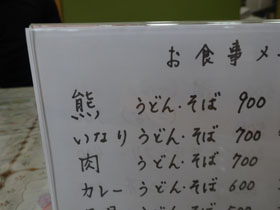 お食事メ
熊 うどん・そば 900
いなり うどん・そば 700
肉 うどん・そば 700
カレー うどん・そば 600
うどん・そば 500